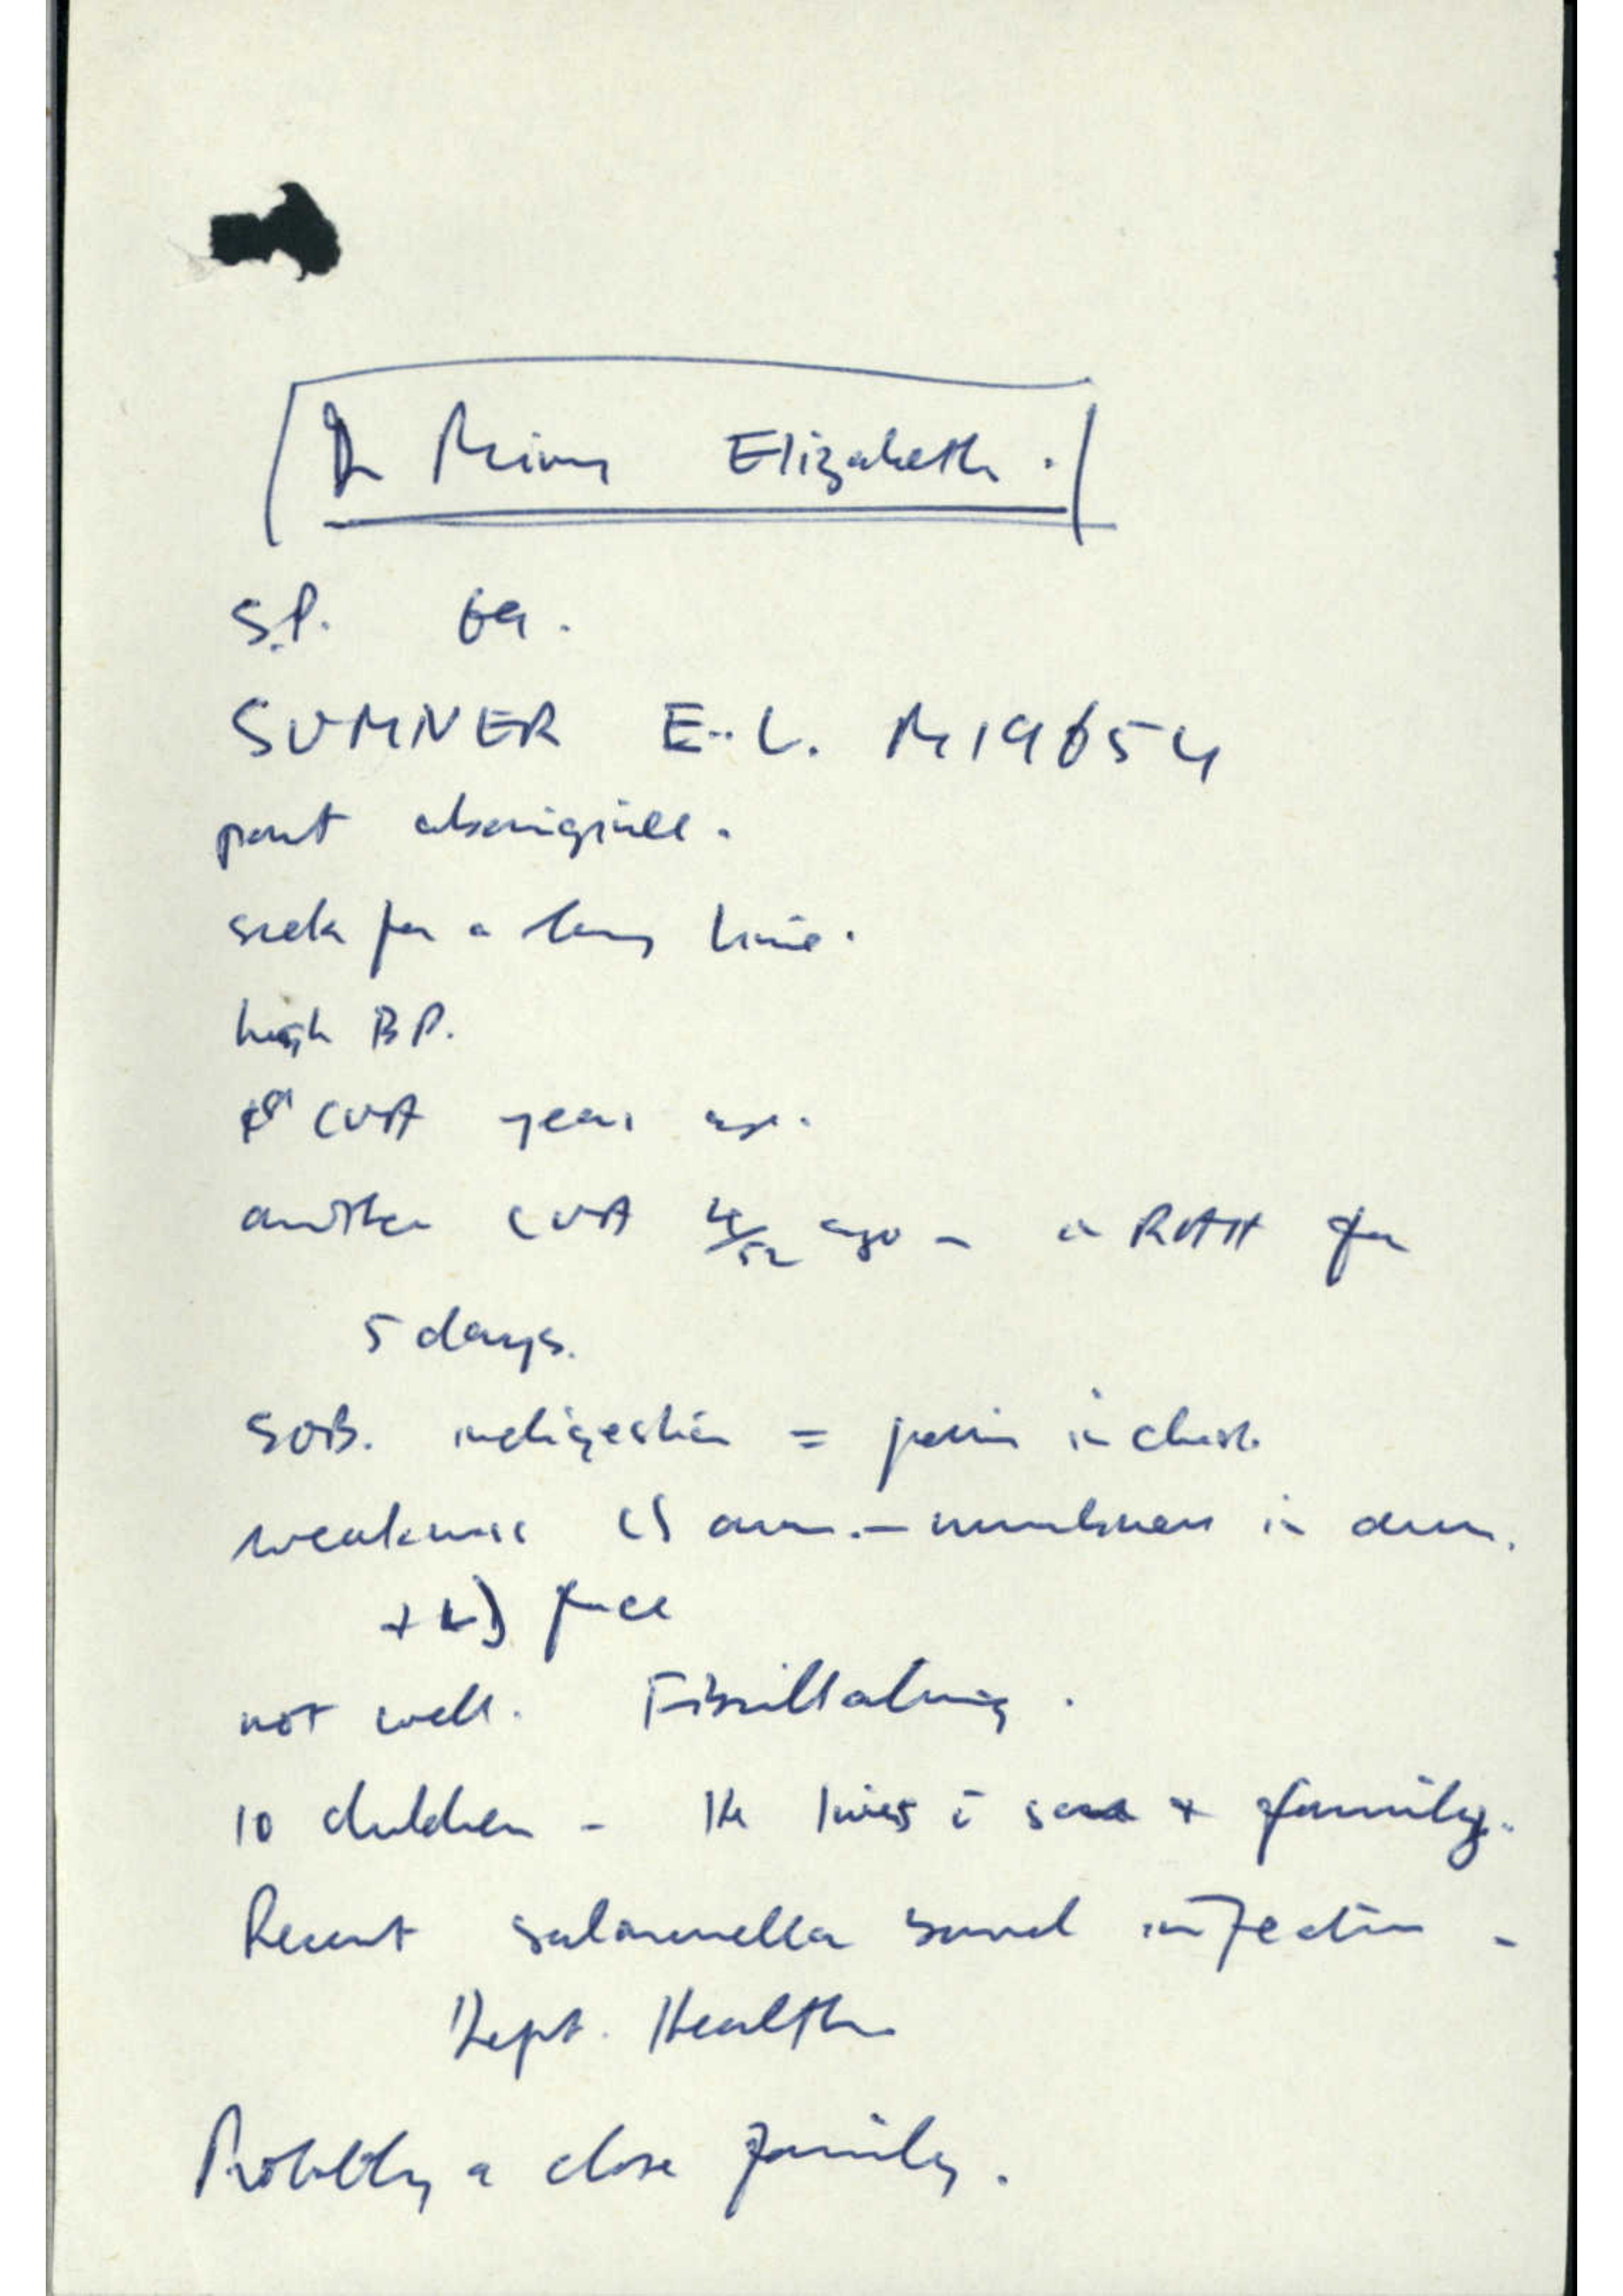 Dr Elizabeth.
S.P. 69.
SUMNER E.L. M19654
part aboriginee.
sick for a long time.
high BP.
CVA years ago.
another CVA 4/52 ago - in RAH for
5 days.
SOB. indigestion = pain in chest.
weakness (L) arm. - numbness in arm.
+ (L) face
not well. Fibrillating.
10 children - He lives c̄ son + family.
Recent salmonella bowel infection -
Dept. Health
Probably a close family.